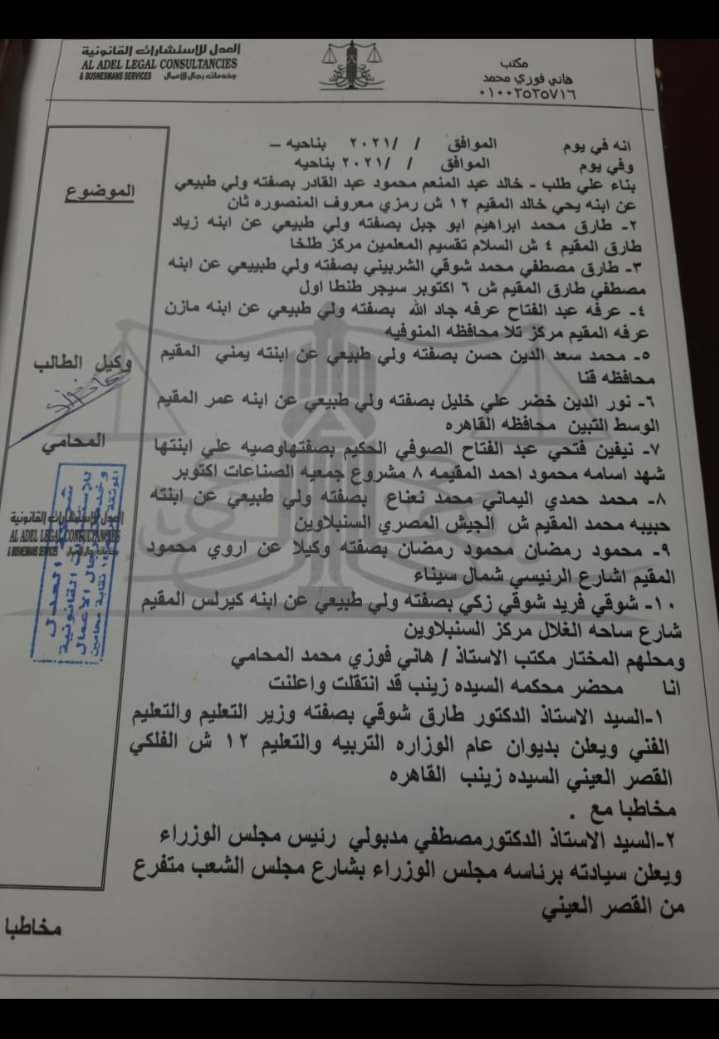 العدل للإستشارات القانونية
AL ADEL LEGAL CONSULTANCIES
& BUSNESMANS SERVICES وخدمات رجال الأعمال
مكتب
هاني فوزي محمد
٠١٠٠٢٥٢٥٧١٦
انه في يوم الموافق / /٢٠٢١ بناحيه –
وفي يوم الموافق / /٢٠٢١ بناحيه
بناء علي طلب - خالد عبد المنعم محمود عبد القادر بصفته ولي طبيعي
عن ابنه يحي خالد المقيم ١٢ ش رمزي معروف المنصوره ثان
٢- طارق محمد ابراهيم ابو جبل بصفته ولي طبيعي عن ابنه زياد
طارق المقيم ٤ ش السلام تقسيم المعلمين مركز طلخا
٣- طارق مصطفي محمد شوقي الشربيني بصفته ولي طبييعي عن ابنه
مصطفي طارق المقيم ش ٦ اكتوبر سيجر طنطا اول
٤- عرفه عبد الفتاح عرفه جاد الله بصفته ولي طبيعي عن ابنه مازن
عرفه المقيم مركز تلا محافظه المنوفيه
٥- محمد سعد الدين حسن بصفته ولي طبيعي عن ابنته يمني المقيم
محافظه قنا
٦- نور الدين خضر علي خليل بصفته ولي طبيعي عن ابنه عمر المقيم
الوسط التبين محافظه القاهره
٧- نيفين فتحي عبد الفتاح الصوفي الحكيم بصفتهاوصيه علي ابنتها
شهد اسامه محمود احمد المقيمه ٨ مشروع جمعيه الصناعات اكتوبر
٨- محمد حمدي اليماني محمد نعناع بصفته ولي طبيعي عن ابنته
حبيبه محمد المقيم ش الجيش المصري السنبلاوين
٩- محمود رمضان محمود رمضان بصفته وكيلا عن اروي محمود
المقيم اشارع الرئيسي شمال سيناء
١٠- شوقي فريد شوقي زكي بصفته ولي طبيعي عن ابنه كيرلس المقيم
شارع ساحه الغلال مركز السنبلاوين
ومحلهم المختار مكتب الاستاذ / هاني فوزي محمد المحامي
انا محضر محكمه السيده زينب قد انتقلت واعلنت
١-السيد الاستاذ الدكتور طارق شوقي بصفته وزير التعليم والتعليم
الفني ويعلن بديوان عام الوزاره التربيه والتعليم ١٢ ش الفلكي
القصر العيني السيده زينب القاهره
مخاطبا مع .
٢-السيد الاستاذ الدكتورمصطفي مدبولي رئيس مجلس الوزراء
ويعلن سيادته برئاسه مجلس الوزراء بشارع مجلس الشعب متفرع
من القصر العيني
مخاطبا
الموضوع
وكيل الطالب
المحامي
العدل للإستشارات القانونية
AL ADEL LEGAL CONSULTANCIES
& BUSNESMANS SERVICES